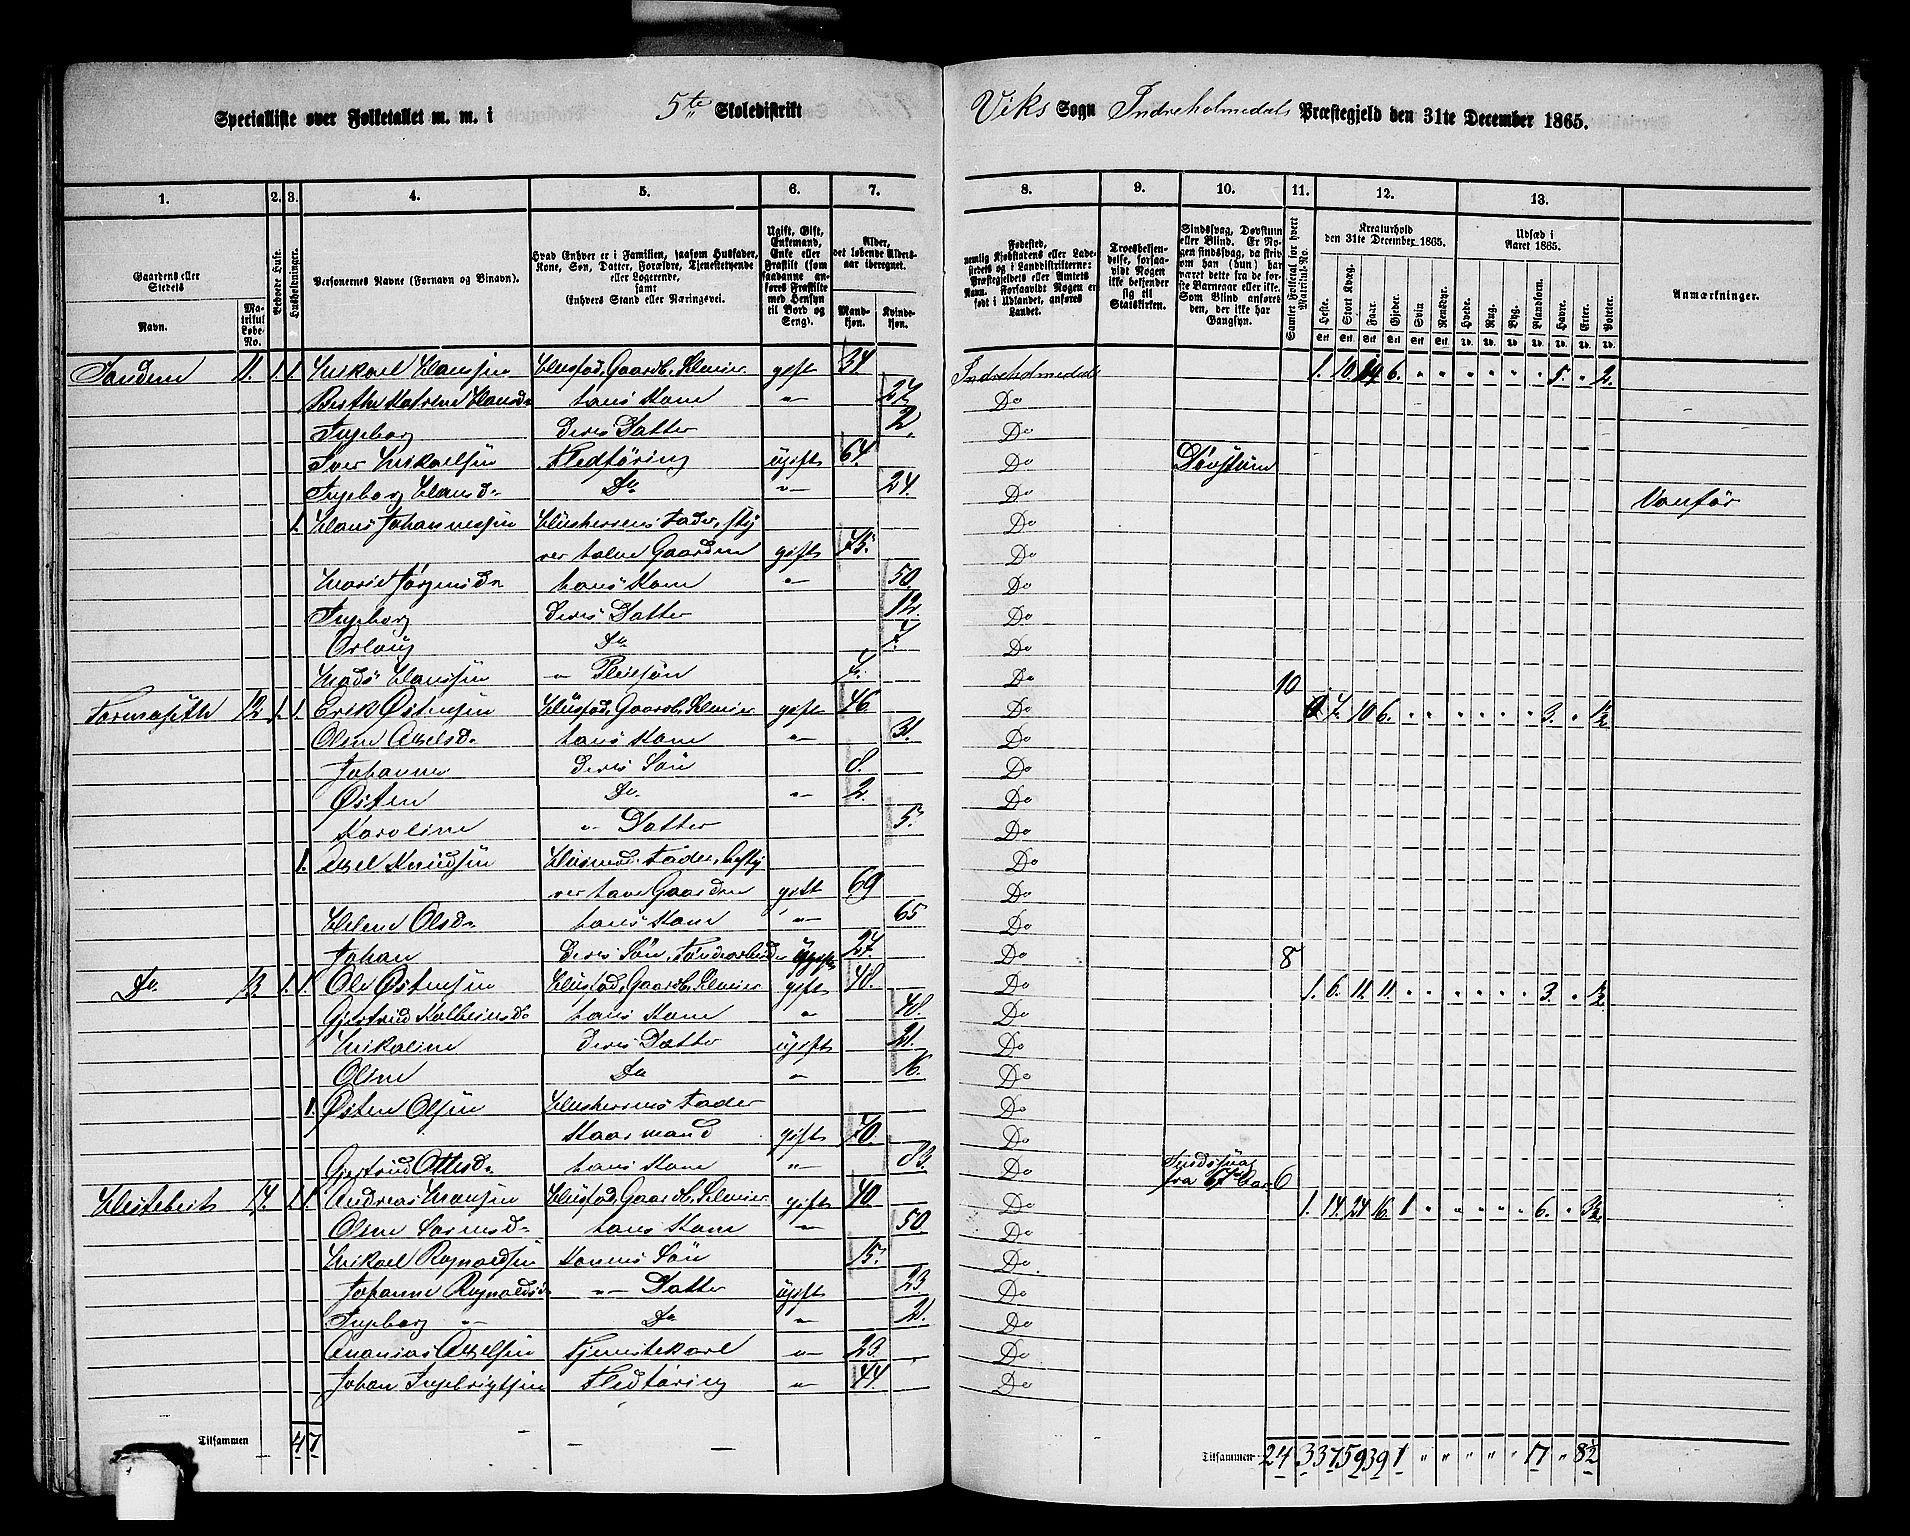 Specialliste over Folketallet m. m. i 5te Skoledistrikt Viks Sogn Indreholmedals Præstegjeld den 31te December 1865.
1. 2. 3. 4. 5. 6. 7. 8. 9. 10. 11. 12. 13.
Gaardens eller Stedets Navn. Matrikul Løbe-No. Beboede Huse. Husholdninger.
Personernes Navne (Fornavn og Binavn).
Hvad Enhver er i Familien, saasom Husfader, Kone, Søn, Datter, Forældre, Tjenestetyende eller Logerende, samt Enhvers Stand eller Næringsvei.
Ugift, Gift, Enkemand, Enke eller Fraskilt (som saadanne anføres Fraskilte med Hensyn til Bord og Seng).
Alder, det løbende Aldersaar iberegnet. Mandkjøn. Kvindekjøn.
Fødested, nemlig Kjøbstadens eller Ladestedets og i Landdistrikterne: Præstegjeldets eller Amtets Navn. Forsaavidt Nogen er født i Udlandet, anføres Landet.
Troesbekjendelse, forsaavidt Nogen ikke bekjender sig til Statskirken.
Sindssvag, Døvstum eller Blind. Er Nogen sindssvag, da skrives om han (hun) har været dette fra de første Barneaar eller ikke. Som Blind anføres den, der ikke har Gangsyn.
Samlet Folketal for hvert Matrikul-No.
Kreaturhold den 31te December 1865. Heste. Stort Kvæg. Faar. Gjeder. Svin. Rensdyr.
Udsæd i Aaret 1865. Hvede. Rug. Byg. Blandkorn. Havre. Erter. Poteter.
Anmærkninger.
11. 1. 1. Mikael Hanssen Husfad. Gaardb. Selveier gift 34 Indreholmedals 1. 10 14 6. " " " " " " 5. " 2.
Berthe Katrine Hansd. hans Kone " 27 Do
Ingeborg Deres Datter 2 Do
Iver Mikaelsen Fledføring ugift 64. Do Døvstum
Ingeborg Hansd. Do " 24. Do Vanfør
1. Hans Johannessen Husherrens Fader, sty Do
rer halve Gaarden gift 75. Do
Marie Jørgensd. hans Kone " 50 Do
Ingeborg Deres Datter 12. Do
Do 7. Do
Mads Hanssen " Pleiesøn 7. Do 10
12 1. 1. Erik Østensen Husfad. Gaardb. Selveier gift 46 Do 7. 10 6. " " " " " " 3. " 1½
Oline Axelsd. hans Kone " 31. Do
Johannes Deres Søn 8. Do
Østen Do " 2. Do
Karoline " Datter 5. Do
1. Axel Knudsen Do
rer halve Gaarden gift 69 Do
Helene Olsd. hans Kone " 65 Do
Johan Deres Søn ugift 27. Do 8
Do 13. 1. 1. Ole Østensen Husfad. Gaardb. Selveier gift 48. Do 1. 6. 11. 11. " " " " " " 3. " 1½
Gjertrud Kolbeinsd. hans Kone " 48. Do
Mikaline Deres Datter ugift 21. Do
Oline Do " 16. Do
1. Østen Olsen Husherrens Fader Do
Kaarmand gift 70. Do
Gjertrud Ottesd. hans Kone " 83. Do Sindssvag fra 67de Aar 6
Hestebeit 14. 1 1. Andreas Monsen Husfad. Gaardb. Selveier gift 40 Do 1. 14. 24 16. 1 " " " " " 6. " 3½
Oline hans Kone " 50. Do
Mikael Ragnaldsen Konens Søn 15. Do
Johanne Ragnaldsd. " Datter ugift 23 Do
Ingeborg " Do " 21. Do
Ananias Axelsen Tjenestekarl " 23 Do
Johan Ingebrigtsen Fledføring " 44. Do
Tilsammen 4 7 Tilsammen 24 3 37 59 39 1 " " " " " 17 " 8½